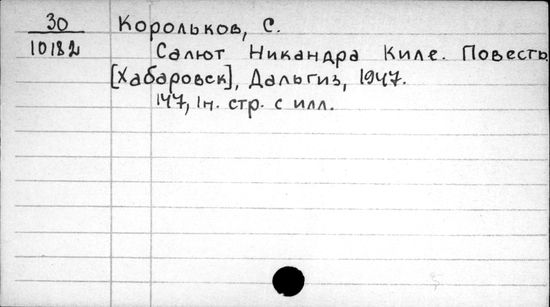 30 Корольков, С.
10182 Салют Никандра Киле. Повесть.
[Хабаровск], Дальгиз, 1947.
147, 1н. стр. с илл.